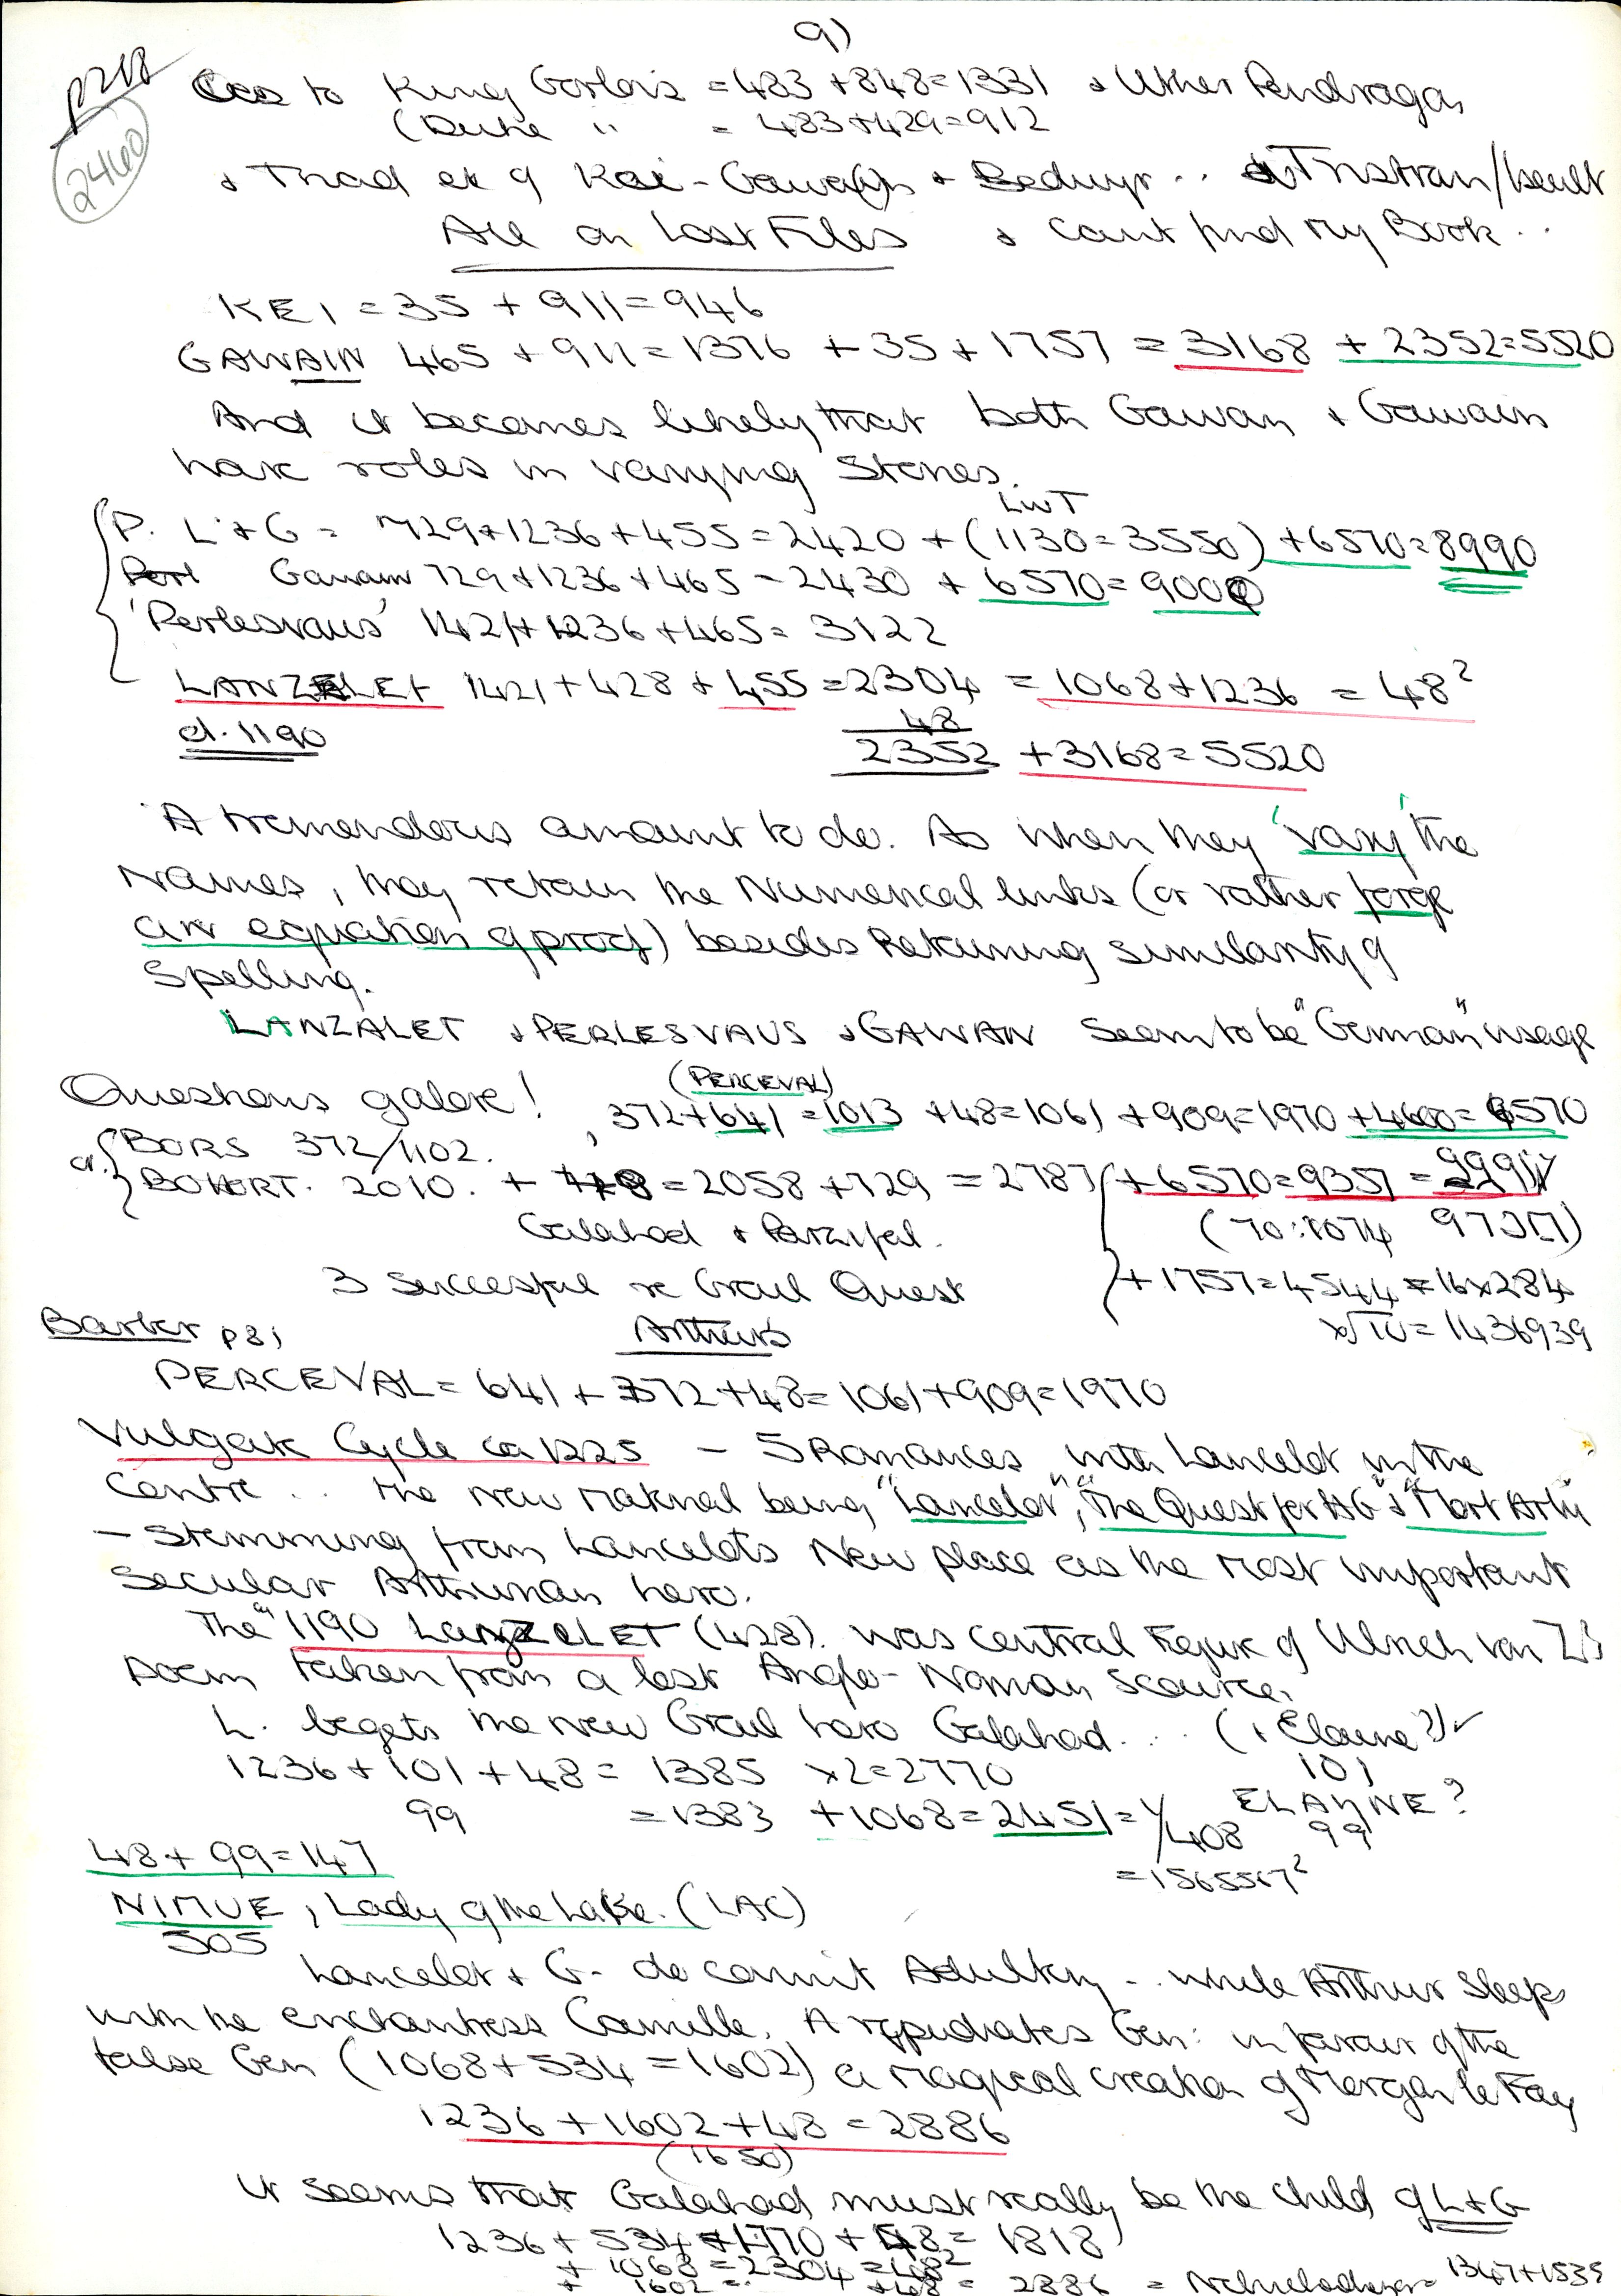 9)
2460
as to King Gorlois = 483 + 848 = 1331 & Uther Pendragon
(Duke " = 483 + 429 = 912
& Triad of Kai - Gawa(i)n & Bedwyr .. & Tristran/Iseult
All on Lost Files & cant find my Book ..
KEI = 35 + 911 = 946
GAWAIN 465 + 911 = 1376 + 35 + 1757 = 3168 + 2352 = 5520
And it becomes likely that both Gawan & Gawain
have roles in varying Stories.
LWT
P. L + G = 729 + 1236 + 455 = 2420 + (1130 = 3550) + 6570 = 8990
Gawain 729 + 1236 + 465 = 2430 + 6570 = 9000
'Perlesvaus' 1421 + 1236 + 465 = 3122
LANZELET 1421 + 428 + 455 = 2304 = 1068 + 1236 = 48²
d. 1190 48
2352 + 3168 = 5520
A tremendous amount to do. As when they 'vary' the
Names, they retain the Numerical links (or rather forge
an equation of proof) besides Retaining similarity of
Spelling.
LANZALET & PERLESVAUS & GAWAN seem to be "German" usage
Questions galore! (PERCEVAL)
372 + 641 = 1013 + 48 = 1061 + 909 = 1970 + 4600 = 6570
BORS 372/1102.
or BOHORT. 2010. + 48 = 2058 + 729 = 2787 + 6570 = 9357 =
Galahad & Parzifal.
3 Successful re Grail Quest + 1757 = 4544 = 16 x 284
x√10 = 1436939
Barber p 8; Arthurs
PERCEVAL = 641 + 372 + 48 = 1061 + 909 = 1970
Vulgate Cycle ca 1225 - 5 Romances with Lancelot in the
Centre .. the new material being "Lancelot", "The Quest for HG" & "Mort Artu"
- Stemming from Lancelots New place as the most important
Secular Arthurian hero.
The "1190 LanzeLET (428). was central figure of Ulrich von Z's
poem taken from a lost Anglo-Norman source.
L. begets the new Grail hero Galahad ... (& Elaine?) ✓
1236 + 101 + 48 = 1385 x2 = 2770 101
ELAYNE?
99 = 1383 + 1068 = 2451 = 1/408 99
48 + 99 = 147 = 1565567²
NIMUE, Lady of the Lake. (LAC)
505
Lancelot & G. do commit Adultery .. while Arthur sleeps
with the enchantress Camille. A reppudiates Gen: in favour of the
false Gen (1068 + 534 = 1602) a magical creation of Morgan le Fay
1236 + 1602 + 48 = 2886
(1650)
It seems that Galahad must really be the child of L + G
1236 + 534 = 1770 + 48 = 1818
+ 1068 = 2304 = 48²
+ 1602 = + 48 = 2886 = 1347 + 1539